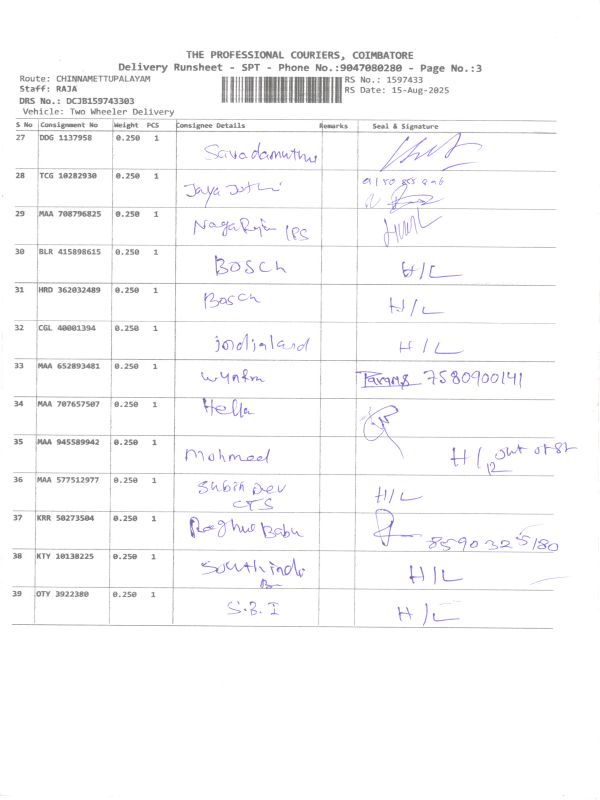 THE PROFESSIONAL COURIERS, COIMBATORE
Delivery Runsheet - SPT - Phone No.:9047080280 - Page No.:3
Route: CHINNAMETTUPALAYAM RS No.: 1597433
Staff: RAJA RS Date: 15-Aug-2025
DRS No.: DCJB159743303
Vehicle: Two Wheeler Delivery
S No Consignment No Weight PCS Consignee Details Remarks Seal & Signature
27 DDG 1137958 0.250 1
28 TCG 10282930 0.250 1 Jaya Jothi
29 MAA 708796825 0.250 1 NagaRaja IPS
30 BLR 415898615 0.250 1 BOSCH H/L
31 HRD 362032489 0.250 1 BOSCH H/L
32 CGL 40001394 0.250 1 H/L
33 MAA 652893481 0.250 1 7580900141
34 MAA 707657507 0.250 1 Hella
35 MAA 945589942 0.250 1 Mohmeed H/L out of St
36 MAA 577512977 0.250 1 Subin Dev H/L
CTS
37 KRR 50273504 0.250 1 Raghu Babu
38 KTY 10138225 0.250 1 South indi H/L
39 OTY 3922380 0.250 1 S.B.I H/L